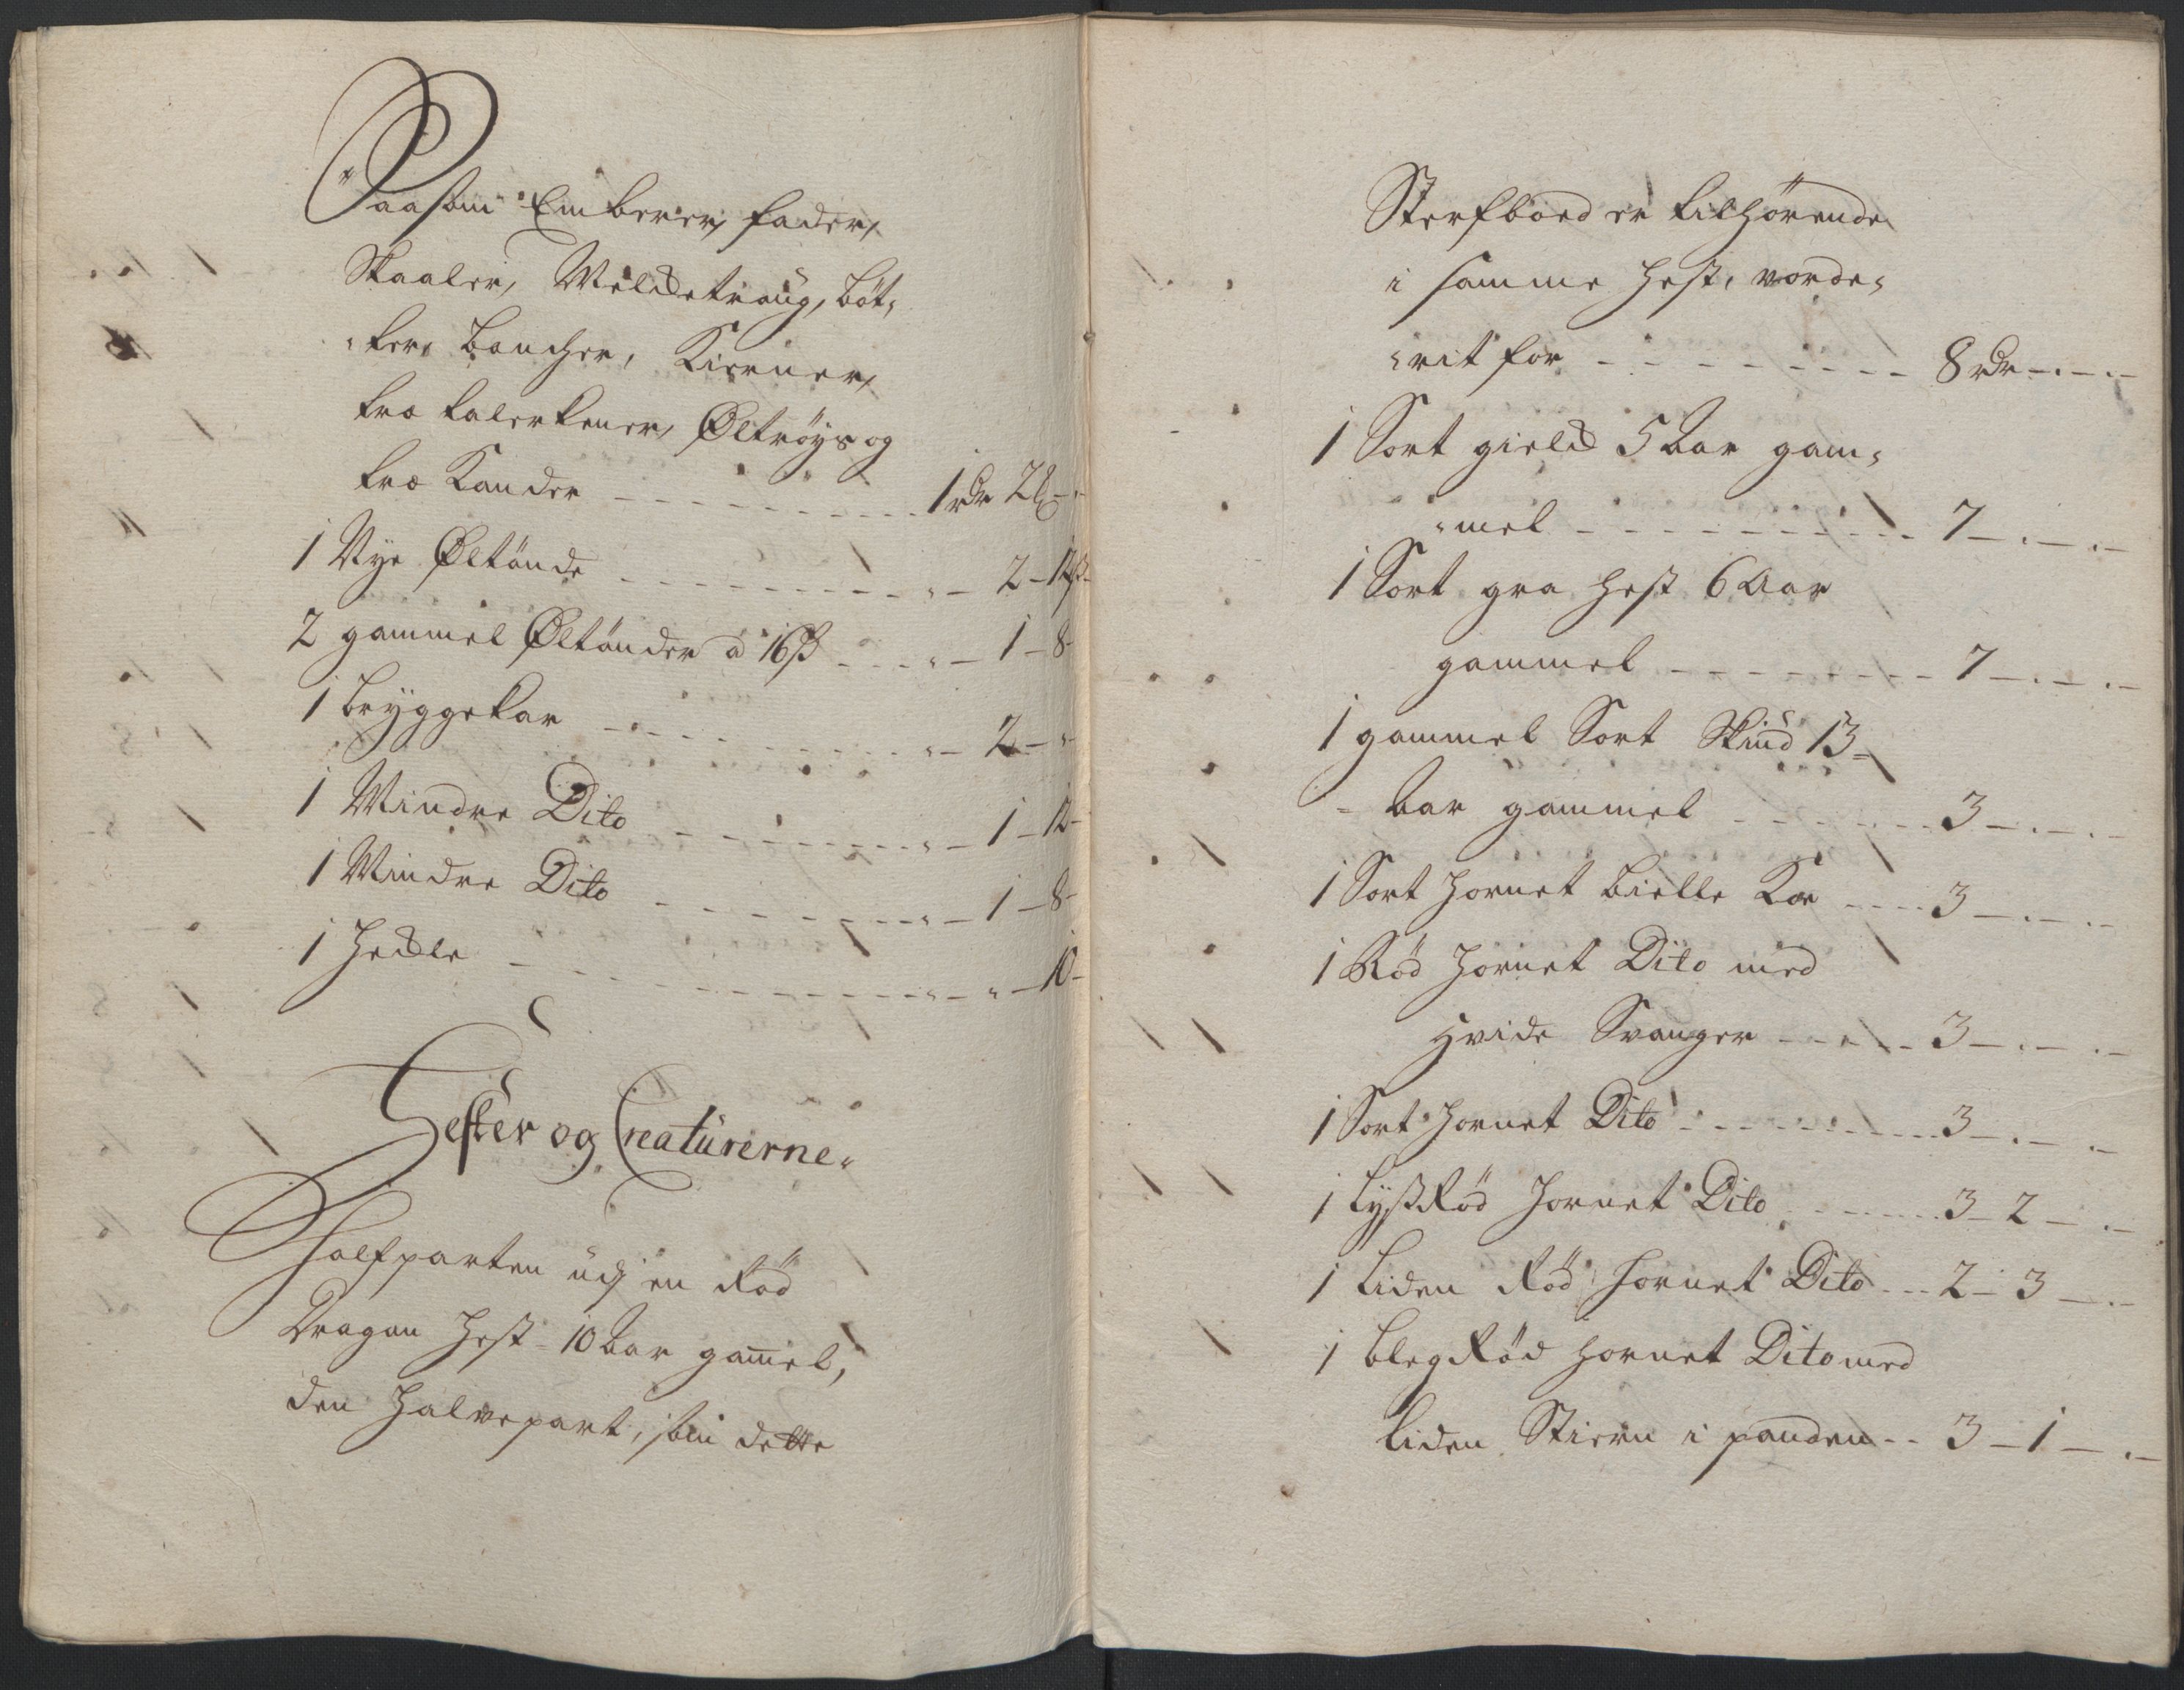 Saasom Emberer, fader,
Skaaler, Meldetraug, böt,
ker, Boucher, Kierner,
træ talerkener, Øltröys og
træ Kander - - - 1 rdr 2 -
1 Nye Øltönde - - - " - 2 - 12 ß
2 gammel Øltönder a 16 ß - - - " - 1 - 8
1 bryggekar - - - " - 2 - "
1 Mindre Dito - - - " - 1 - 12
1 Mindre Dito - - - " - 1 - 8
1 Hedle - - - " - " - 10
Hester og Creaturerne.
Halfparten udj en Rød
Dragon Hest 10 Aar gamel,
den Halvepart, som dette
Sterfboed er tilhörende
i samme Hest, vorde,
rit for - - - 8 rdr - . - . -
1 Sort gield 5 Aar gam,
mel - - - 7 - . - . -
1 Sort gra Hest 6 Aar
gammel - - - 7 - . - . -
1 gammel Sort Skiud 13
Aar gammel - - - 3 - . - . -
1 Sort Hornet bielle Koe - - - 3 - . - . -
1 Rød Hornet Dito med
Hvide Svanger - - - 3 - . - . -
1 Sort Hornet Dito - - - 3 - . - . -
1 lyssRød Hornet Dito - - - 3 - 2 - . -
1 liden Rød Hornet Dito - - - 2 - 3 - . -
1 blegRød Hornet Dito med
liden Stiern i panden - - 3 - 1 - . -